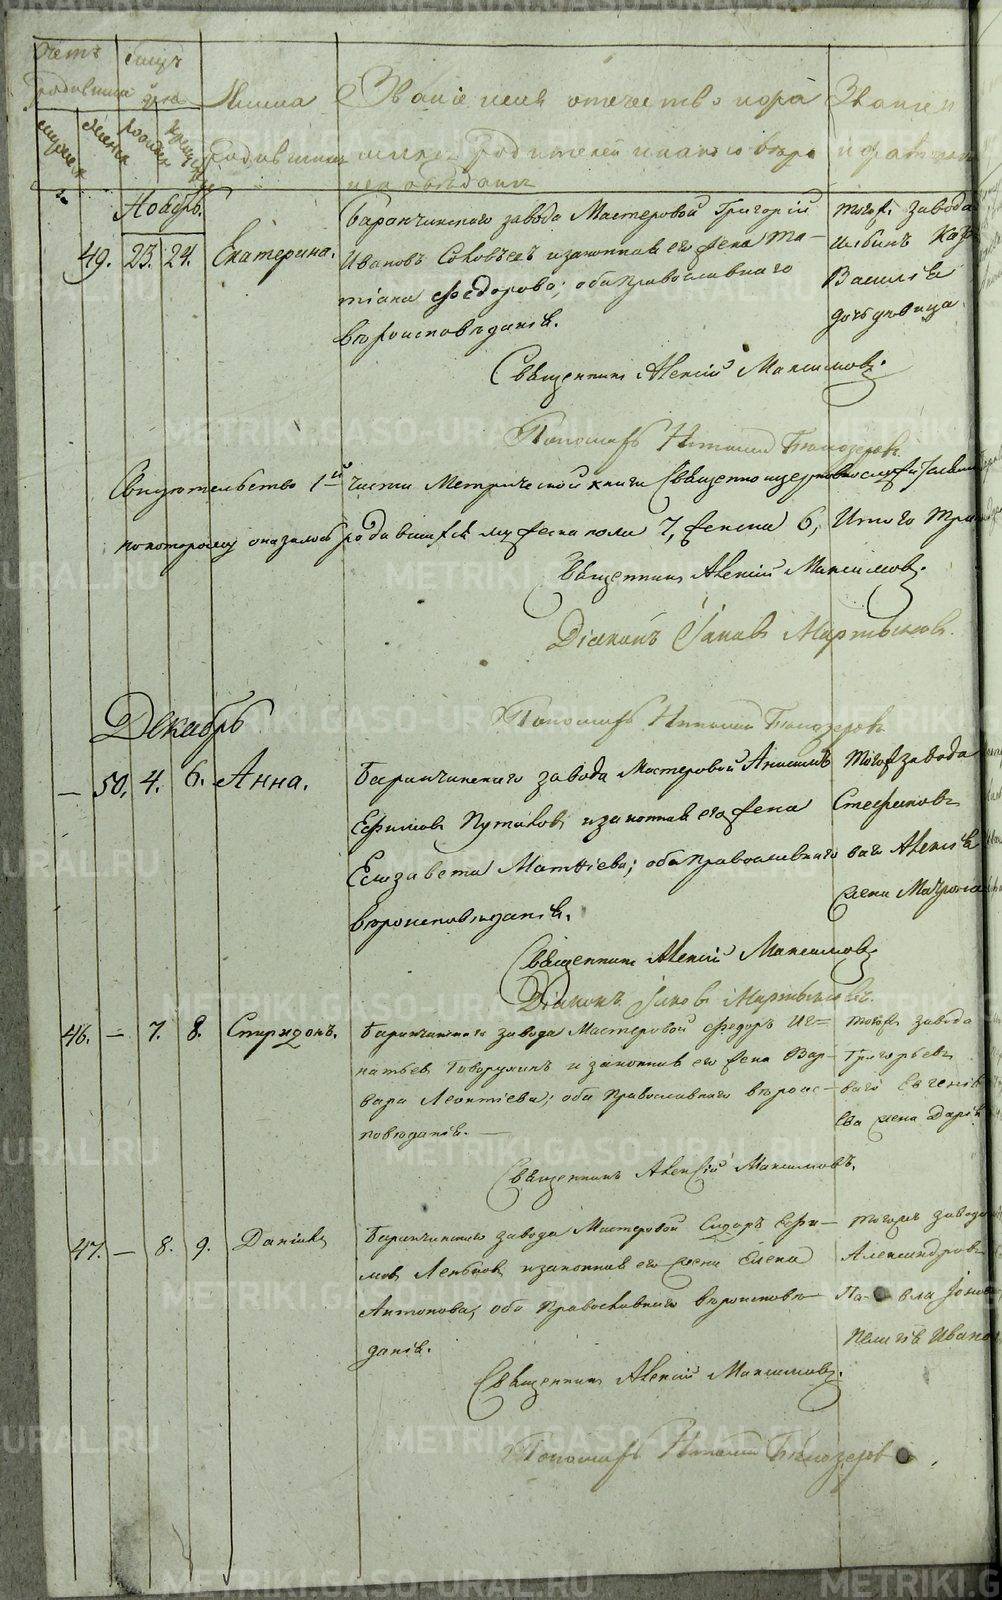 Счетъ родившихся
мужеска
женска
Мѣсяцъ и день
рожденія
крещенія
Имена родившихся
Званіе имя отечество и прозваніе родителей и какого вѣро
исповѣданія
Званіе и
Ноябрь.
49. 23. 24. Екатерина.
Баранчинскаго завода Мастеровой Григорій
Ивановъ и законная его жена Та-
тіана Федорова; оба православнаго
вѣроисповѣданія.
тогоже завода
Василія
дочь дѣвица
Священникъ Алексій Максимовъ.
Пономарь Виталій Бѣлозеровъ
Свидѣтельство 1й части Метрической книги Священноцерковнослужительми
по которому оказалось родившихся мужеска пола 7, женска 6, Итого
Священникъ Алексій Максимовъ.
Діаконъ Іаковъ Мартыновъ.
Пономарь Виталій Бѣлозеровъ
Декабрь
— 50. 4. 6. Анна.
Баранчинскаго завода Мастеровой Анисимъ
Ефимовъ Путиловъ и законная его жена
Елизавета Матѳіева; оба православнаго
вѣроисповѣданія.
тогоже завода
Стефановъ
ваго Алексія
жена Матрона
Священникъ Алексій Максимовъ
Діаконъ Іаковъ Мартыновъ.
46. — 7. 8. Спиридонъ.
Баранчинскаго завода Мастеровой Федоръ Иг=
натьевъ Говорухинъ и законная его жена Вар-
вара Леонтіева; оба православнаго вѣроис-
повѣданія.
тогоже завода
Григорьевъ
ваго Евгенія
ева жена Дарія
Священникъ Алексій Максимовъ.
47. — 8. 9. Даніилъ
Баранчинскаго завода Мастеровой Сидоръ Ефи-
мовъ и законная его жена Елена
Антонова, оба Православнаго вѣроисповѣ-
данія.
тогожъ завода
Александровъ
Павла
Пелагія Иванова
Священникъ Алексій Максимовъ.
Пономарь Виталій Бѣлозеровъ.
METRIKI.GASO-URAL.RU